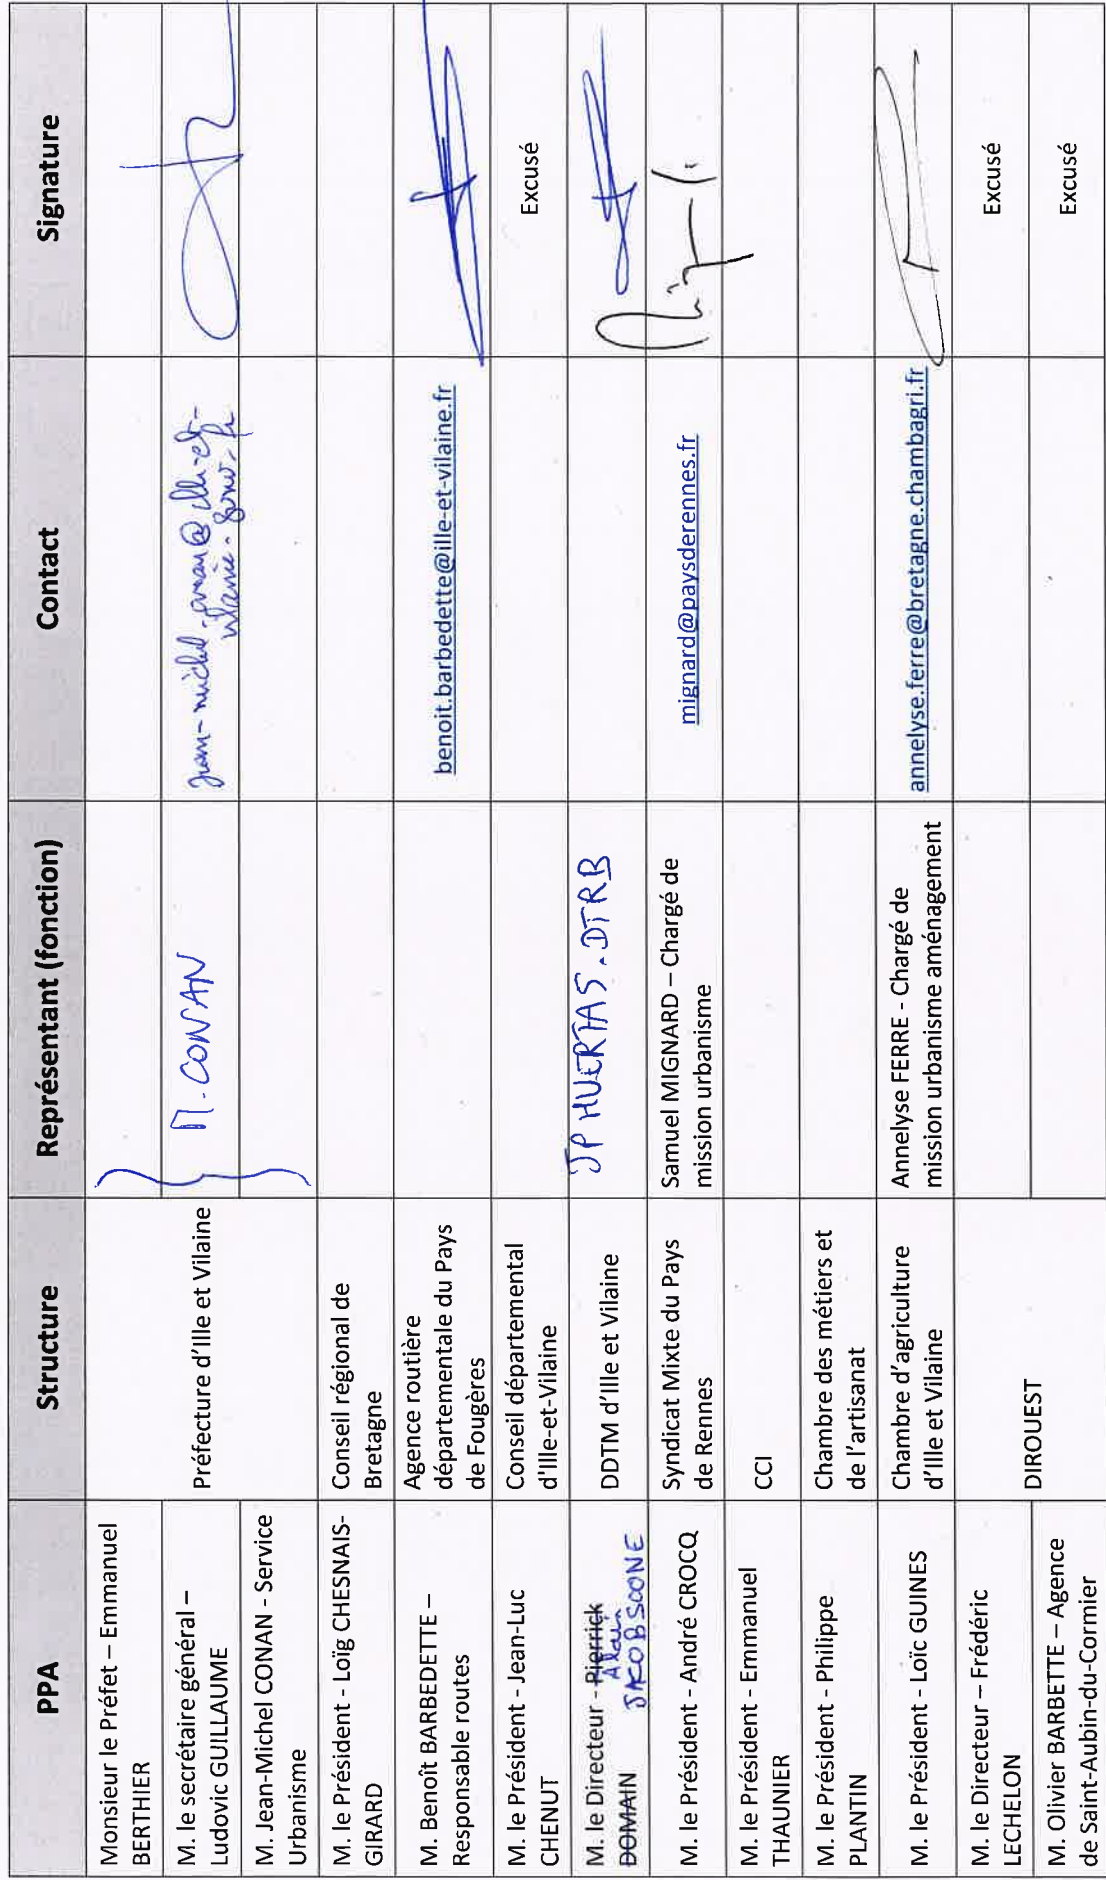 PPA
Structure
Représentant (fonction)
Contact
Signature
Monsieur le Préfet – Emmanuel
BERTHIER
M. le secrétaire général –
Ludovic GUILLAUME
M. Jean-Michel CONAN - Service
Urbanisme
Préfecture d'Ille et Vilaine
M. CONAN
jean-michel.conan@ille-et-
vilaine.gouv.fr
M. le Président - Loïg CHESNAIS-
GIRARD
Conseil régional de
Bretagne
M. Benoît BARBEDETTE –
Responsable routes
Agence routière
départementale du Pays
de Fougères
benoit.barbedette@ille-et-vilaine.fr
M. le Président - Jean-Luc
CHENUT
Conseil départemental
d'Ille-et-Vilaine
Excusé
M. le Directeur - Pierrick
Alain
DOMAIN
JACOBSOONE
DDTM d'Ille et Vilaine
JP HUERTAS. DTRB
M. le Président - André CROCQ
Syndicat Mixte du Pays
de Rennes
Samuel MIGNARD – Chargé de
mission urbanisme
mignard@paysderennes.fr
M. le Président - Emmanuel
THAUNIER
CCI
M. le Président - Philippe
PLANTIN
Chambre des métiers et
de l'artisanat
M. le Président - Loïc GUINES
Chambre d'agriculture
d'Ille et Vilaine
Annelyse FERRE - Chargé de
mission urbanisme aménagement
annelyse.ferre@bretagne.chambagri.fr
M. le Directeur – Frédéric
LECHELON
DIROUEST
Excusé
M. Olivier BARBETTE – Agence
de Saint-Aubin-du-Cormier
Excusé